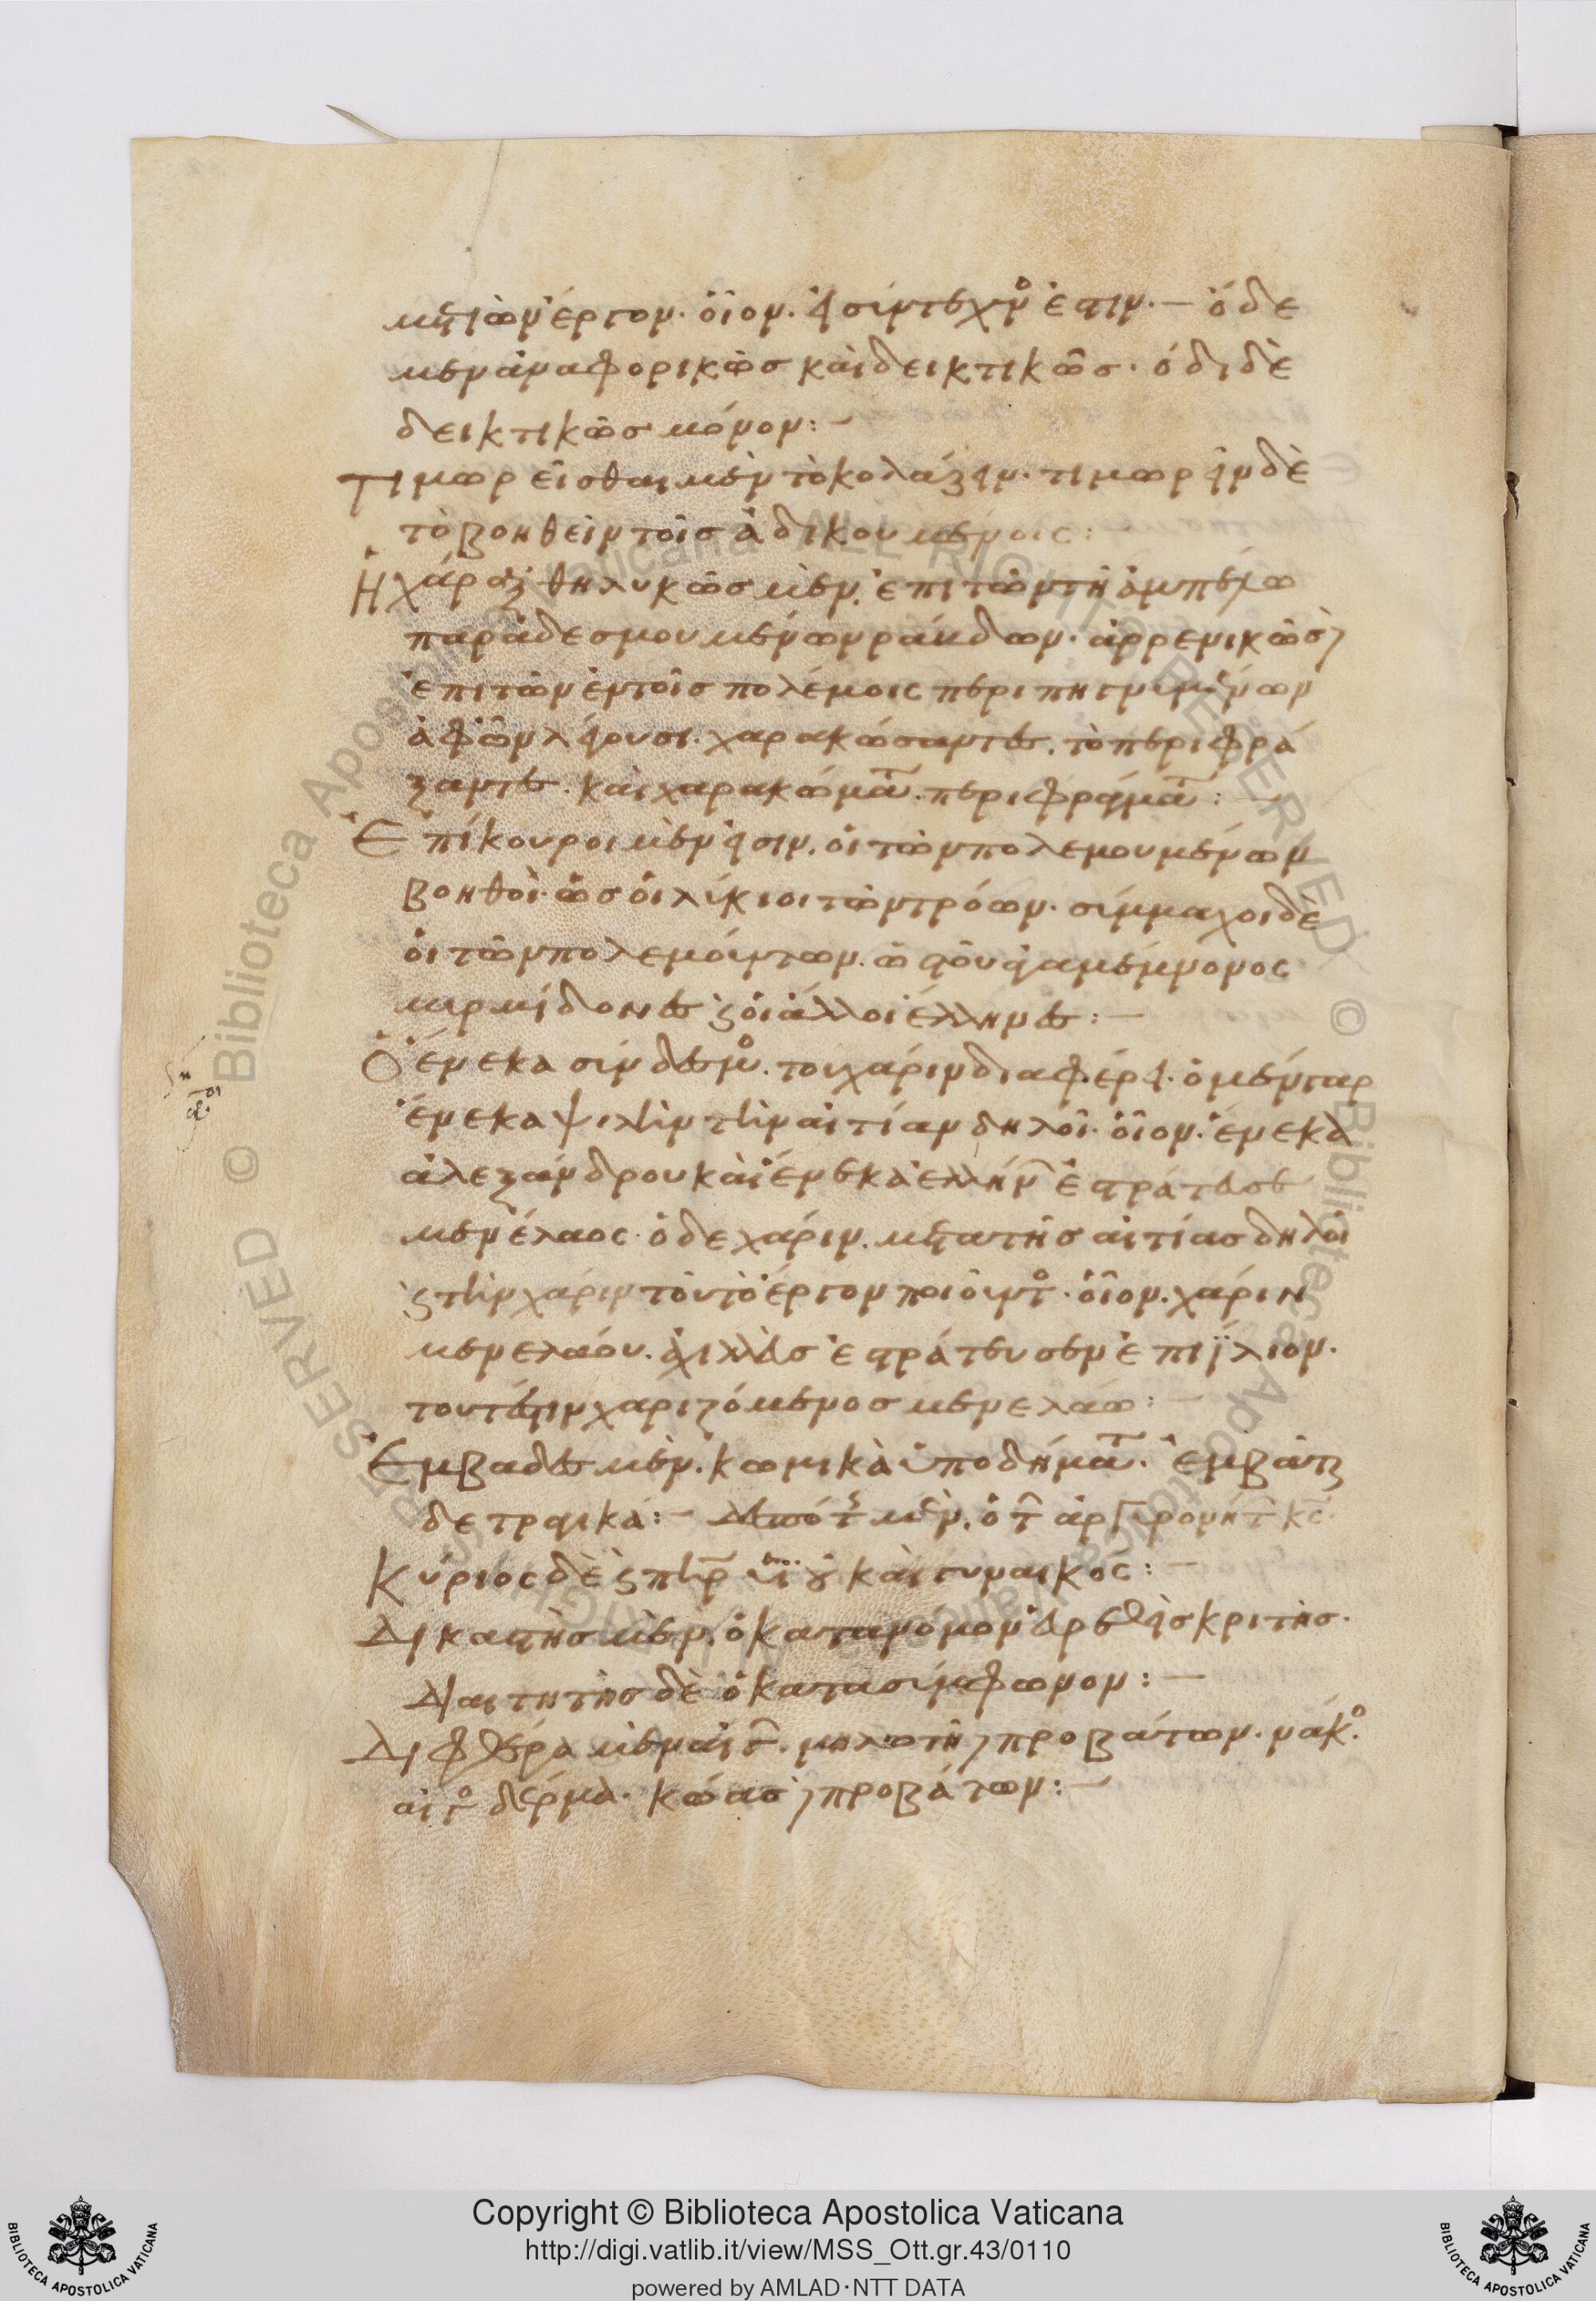 μητιῶν ἔργον. οἷον. εἰ σύντεχνός ἐστιν. — ὅδε
μὲν ἀναφορικῶς καὶ δεικτικῶς. ὁδὶ δὲ
δεικτικῶς μόνον: —
Τιμωρεῖσθαι μὲν τὸ κολάζειν. τιμωρεῖν δὲ
τὸ βοηθεῖν τοῖς ἀδικουμένοις:
Ἡ χάραξ θηλυκῶς μὲν. ἐπὶ τῶν τῆ ἀμπέλω
παραδεσμουμένων ράβδων. ἀρρενικῶς δὲ
ἐπὶ τῶν ἐν τοῖς πολέμοις περιπηγνυμένων
ἀφ' ὧν λέγουσι. χαρακώσαντες. τὸ περιφρά
ξαντες. καὶ χαρακώματα. περιφράγματα: —
Ἐπίκουροι μέν εἰσιν. οἱ τῶν πολεμουμένων
βοηθοί. ὡς οἱ λύκιοι τῶν τρώων. σύμμαχοι δὲ
οἱ τῶν πολεμούντων. ἀγαμέμνονος
μυρμιδόνες καὶ οἱ ἄλλοι ἕλληνες: —
Ὁ ἕνεκα σύνδεσμος. τοῦ χάριν διαφέρει. ὁ μὲν γὰρ
ἕνεκα ψιλὴν τὴν αἰτίαν δηλοῖ. οἷον. ἕνεκα
ἀλεξάνδρου καὶ ἕνεκα ἑλλήν ἐστράτευσε
μενέλαος. ὁ δὲ χάριν. μετὰ τῆς αἰτίας δηλοῖ
καὶ τὴν χάριν τοῦ τὸ ἔργον ποιοῦντος. οἷον. χάριν
μενελάου. ἀχιλλεὺς ἐστράτευσεν ἐπὶ ἴλιον.
τουτέστιν χαριζόμενος μενελάω: —
Ἐμβάδες μὲν. κωμικὰ ὑποδήματα. ἐμβάται
δὲ τραγικά: — Δεσπότης μὲν. ὁ τῶν ἀργυρονήτων
Κύριος δὲ καὶ πατὴρ υἱοῦ καὶ γυναικός: —
Δικαστὴς μὲν. ὁ κατὰ νόμον αἱρεθεὶς κριτής.
Διαιτητὴς δὲ ὁ κατὰ σύμφωνον: —
Διφθέρα μὲν αἰγός. μηλωτὴ δὲ προβάτων. νάκος
αἰγὸς δέρμα. κώας δὲ προβάτων: —
Copyright © Biblioteca Apostolica Vaticana
http://digi.vatlib.it/view/MSS_Ott.gr.43/0110
powered by AMLAD·NTT DATA